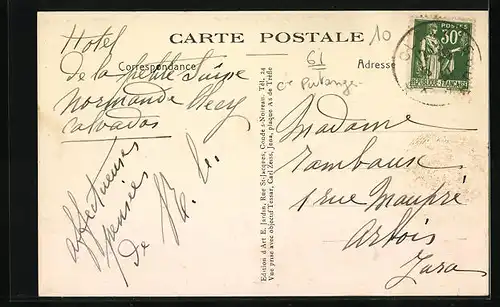 CARTE POSTALE
10
POSTES
30c
REPUBLIQUE FRANÇAISE
Correspondance
Adresse
61
Putanges
Hotel
de la petite Suisse
Normande Clecy
Calvados
affectueuses
pensées
de
Edition d'Art E. Jardin, Rue St-Jacques, Condé s-Noireau. Tél. 24
Vue prise avec objectif Tessar, Carl Zeiss, Jena, plaque As de Trèfle
Madame
1 rue Maupré
Arbois
Jura